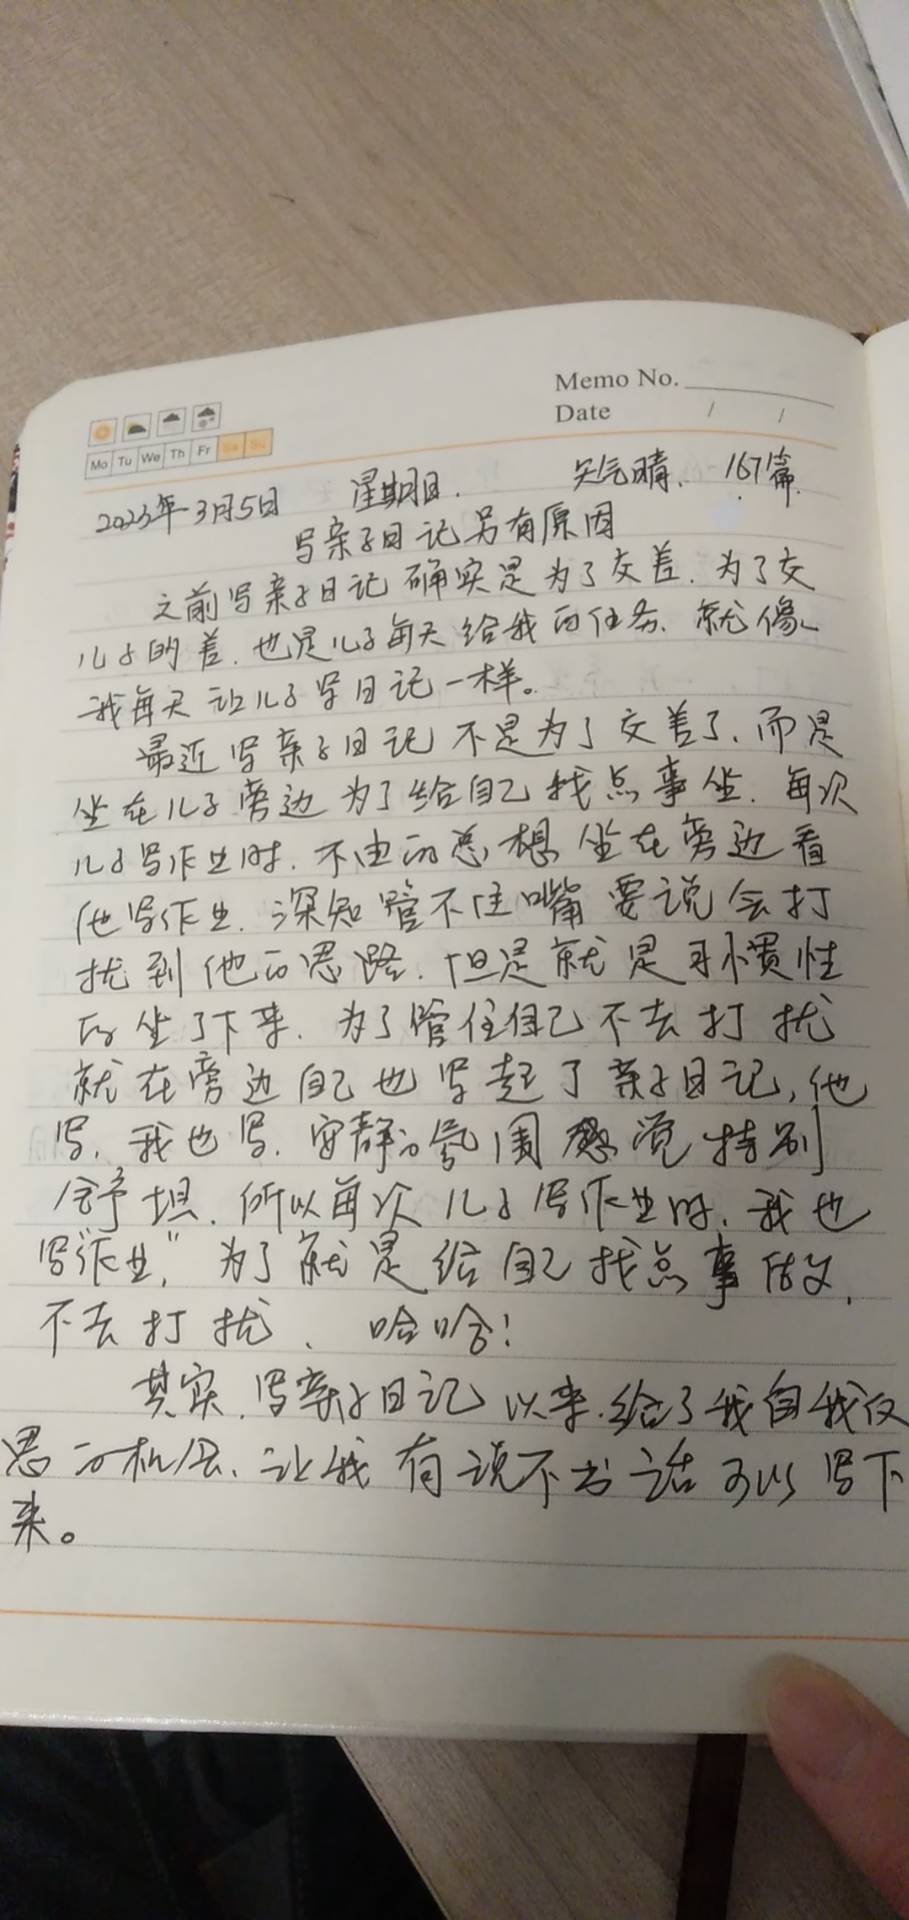 Memo No.
Date / /
Mo Tu We Th Fr Sa Su
2023年3月5日 星期日. 天气晴. 167篇.
写亲子日记另有原因
之前写亲子日记确实是为了交差.为了交
儿子的差.也是儿子每天给我的任务.就像
我每天让儿子写日记一样。
最近写亲子日记不是为了交差了.而是
坐在儿子旁边为了给自己找点事坐.每次
儿子写作业时.不由的总想坐在旁边看
他写作业.深知管不住嘴要说会打
扰到他的思路.但是就是习惯性
的坐了下来.为了管住自己不去打扰
就在旁边自己也写起了亲子日记,他
写,我也写.安静的氛围感觉特别
舒坦.所以每次儿子写作业时.我也
写“作业”,为了就是给自己找点事做.
不去打扰.哈哈!
其实.写亲子日记以来.给了我自我反
思的机会、让我有说不出话可以写下
来。